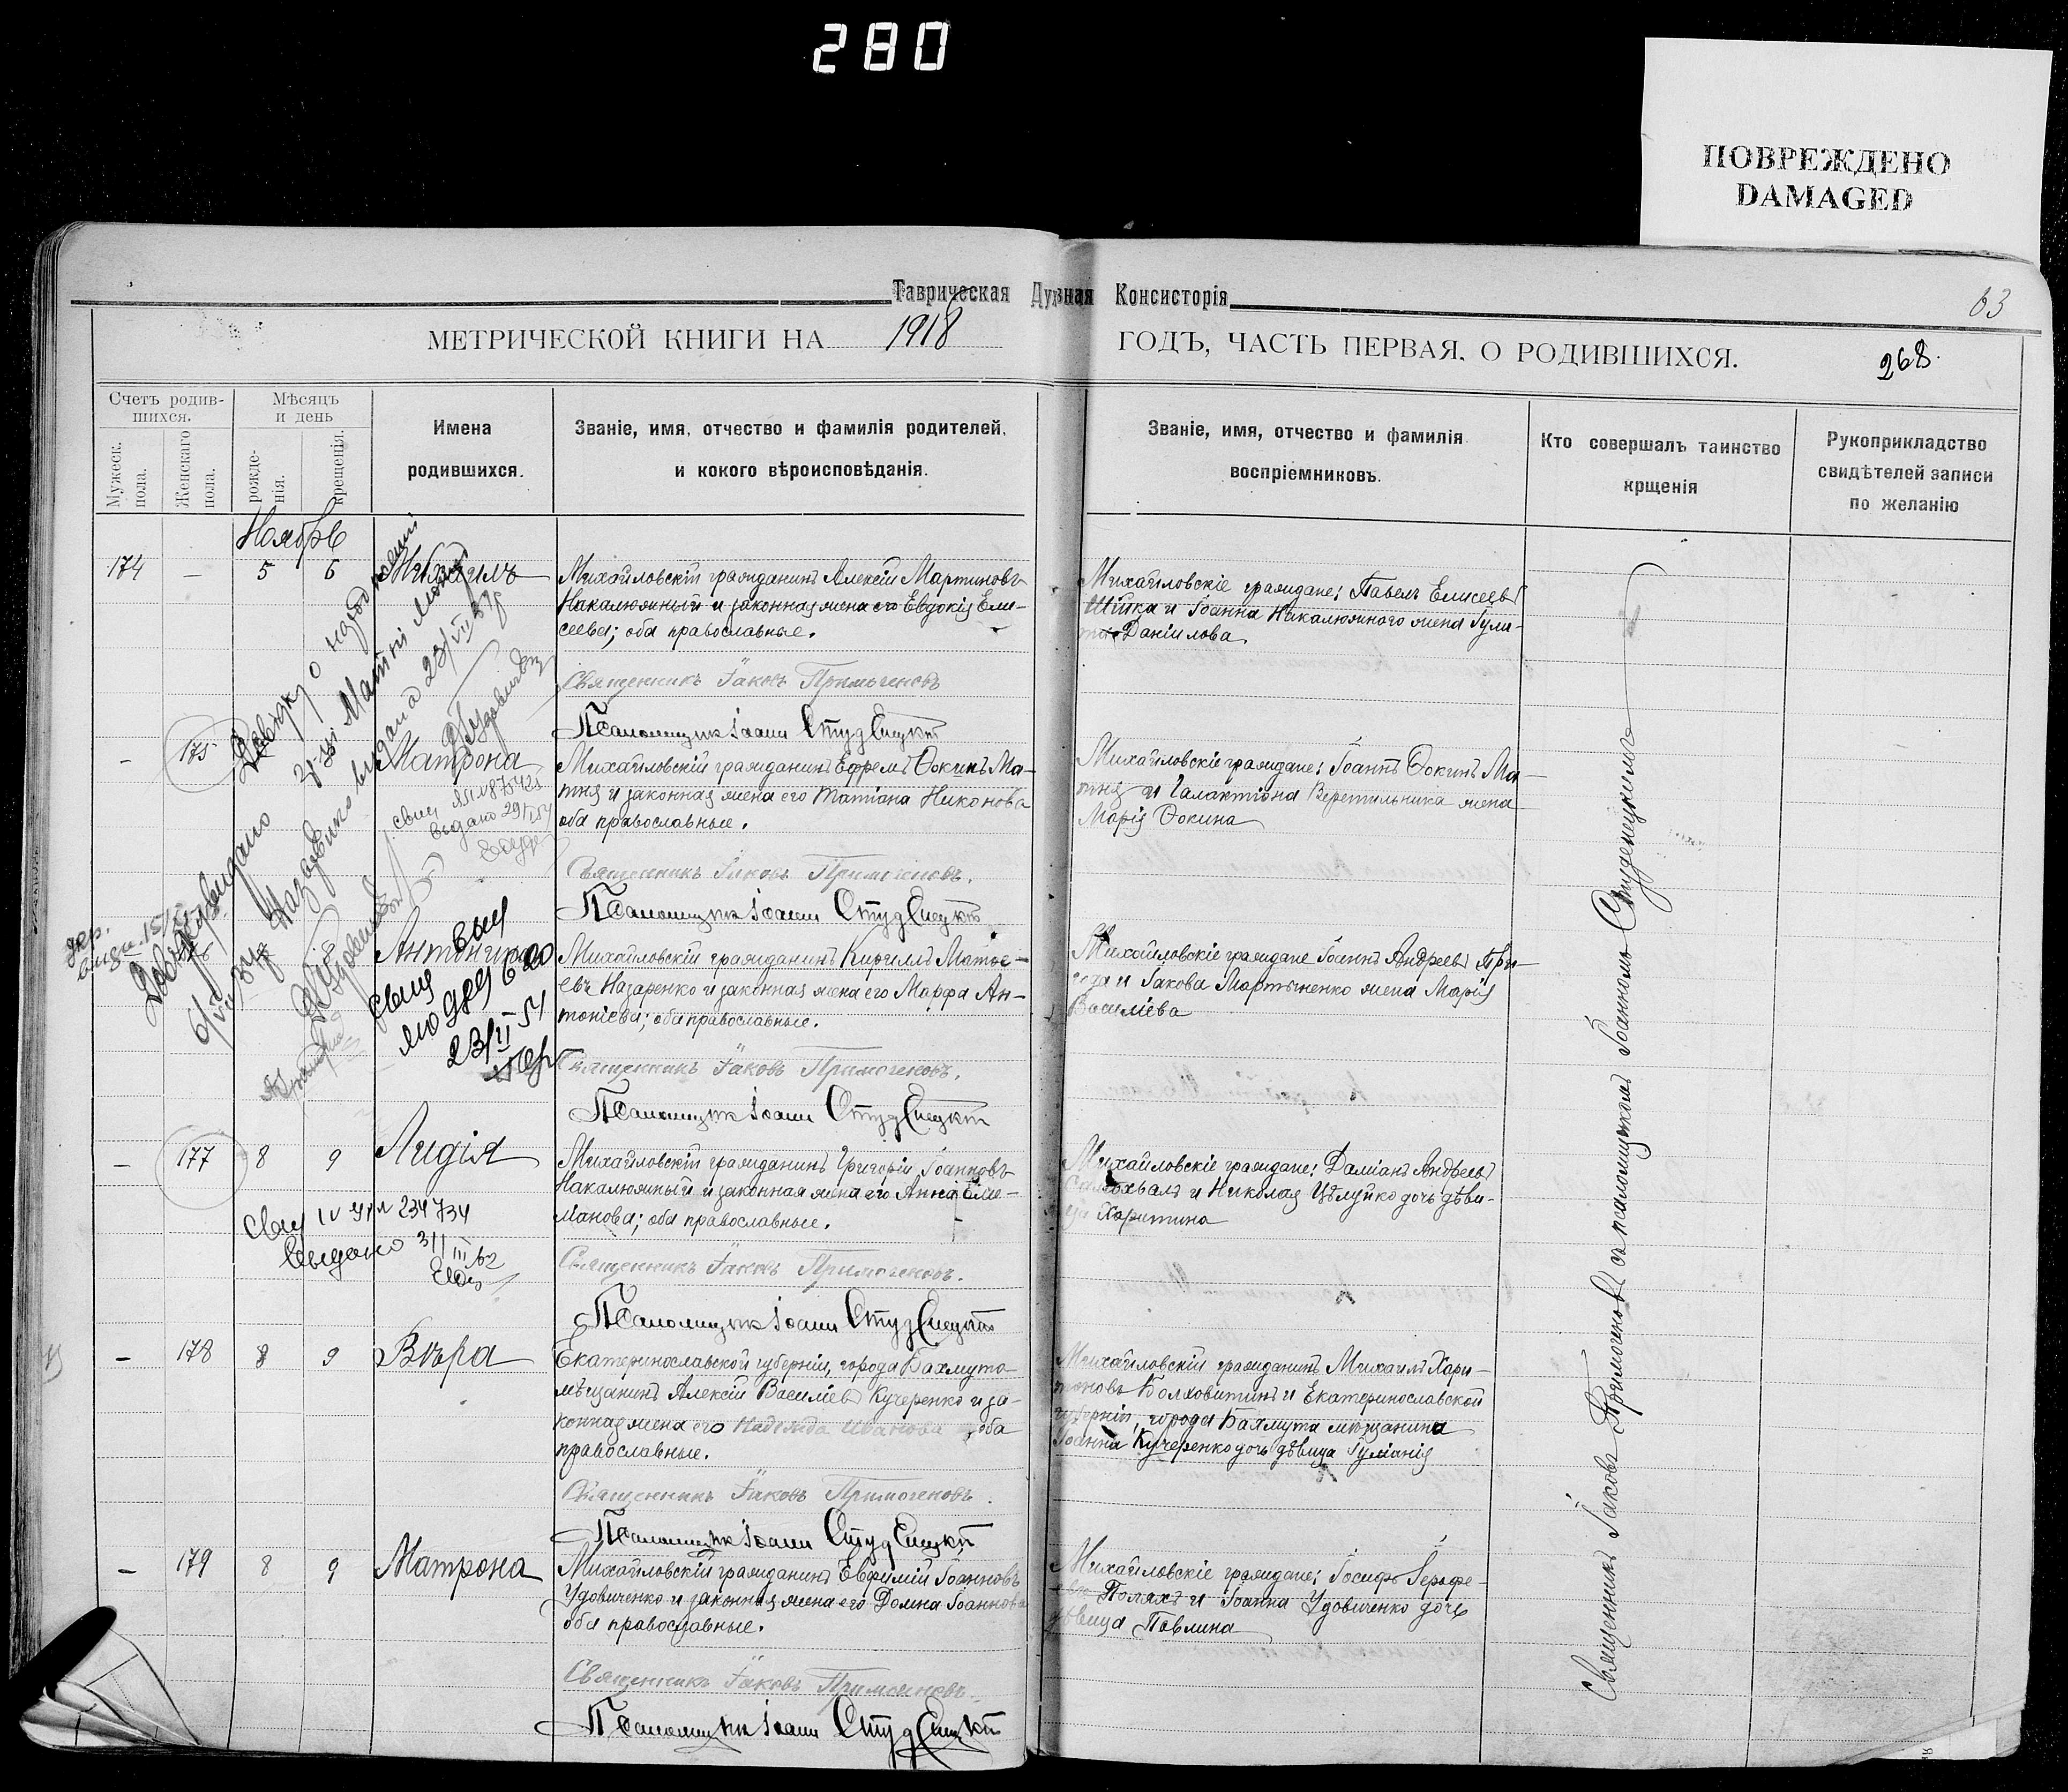 280
ПОВРЕЖДЕНО
DAMAGED
Таврическая Духовная Консисторія
63
МЕТРИЧЕСКОЙ КНИГИ НА 1918 ГОДЪ, ЧАСТЬ ПЕРВАЯ, О РОДИВШИХСЯ.
268.
Счетъ родив-
шихся.
Мужеск. пола.
Женскаго пола.
Мѣсяцъ
и день
рожде-
нія.
крещенія.
Имена
родившихся.
Званіе, имя, отчество и фамилія родителей,
и кокого вѣроисповѣданія.
Званіе, имя, отчество и фамилія
воспріемниковъ.
Кто совершалъ таинство
крщенія
Рукоприкладство
свидѣтелей записи
по желанію
Ноябрь
174 — 5 6 Михаилъ
Михайловскій гражданинъ Алексій Мартиновъ
Накалюжный и законная жена его Евдокія Ели-
сеева; оба православные.
Священникъ Іаковъ Примогеновъ
Псаломщикъ Іоаннъ Студенецкій
Михайловскіе граждане: Павелъ Елисеевъ
Шійка и Іоанна Накалюжного жена Іули-
Даніилова
— 175
Матрона
Михайловскій гражданинъ Ефремъ Фокинъ Ма-
тня и законная жена его Татіана Никонова
оба православные.
Священникъ Іаковъ Примогеновъ.
Псаломщикъ Іоаннъ Студенецкій
Михайловскіе граждане: Іоаннъ Фокинъ Ма-
тня и Галактіона Веретильника жена
Марія Фокина
свид
выдано 29
Довідку видано
Назаренко
видана 23/VII 37р
6/VII 37р
Антонина
свид
23/II 54
Михайловскій гражданинъ Кириллъ Матѳе-
евъ Назаренко и законная жена его Марфа Ан-
тоніева; оба православные.
Священникъ Іаковъ Примогеновъ.
Псаломщикъ Іоаннъ Студенецкій
Михайловскіе граждане Іоаннъ Андреевъ При-
года и Іакова Мартыненко жена Марія
Василіева
— 177 8 9 Лидія
Михайловскій гражданинъ Григорій Іоанновъ
Накалюжный и законная жена его Анна Еми-
ліанова; оба православные.
Священникъ Іаковъ Примогеновъ.
Псаломщикъ Іоаннъ Студенецкій
Михайловскіе граждане: Даміанъ Андреевъ
Самохвалъ и Николая Цѣлуйко дочь дѣви-
ца Харитина
234734
выдано 31 III 62
— 178 8 9 Вѣра
Екатеринославской губерніи, города Бахмута
мѣщанинъ Алексій Василіевъ Кучеренко и за-
конная жена его Надежда Иванова оба
православные.
Священникъ Іаковъ Примогеновъ.
Псаломщикъ Іоаннъ Студенецкій
Михайловскій гражданинъ Михаилъ Хари-
тоновъ Болховитинъ и Екатеринославской
губерніи, города Бахмута мѣщанина
Іоанна Кучеренко дочь дѣвица Іуліанія
— 179 8 9 Матрона
Михайловскій гражданинъ Евфимій Іоанновъ
Удовиченко и законная жена его Домна Іоаннова
оба православные.
Священникъ Іаковъ Примогеновъ.
Псаломщикъ Іоаннъ Студенецкій
Михайловскіе граждане: Іосифъ
Поляхъ и Іоанна Удовиченко дочь
дѣвица Павлина
Священникъ Іаковъ Примогеновъ съ псаломщикомъ Іоанномъ Студенецкимъ